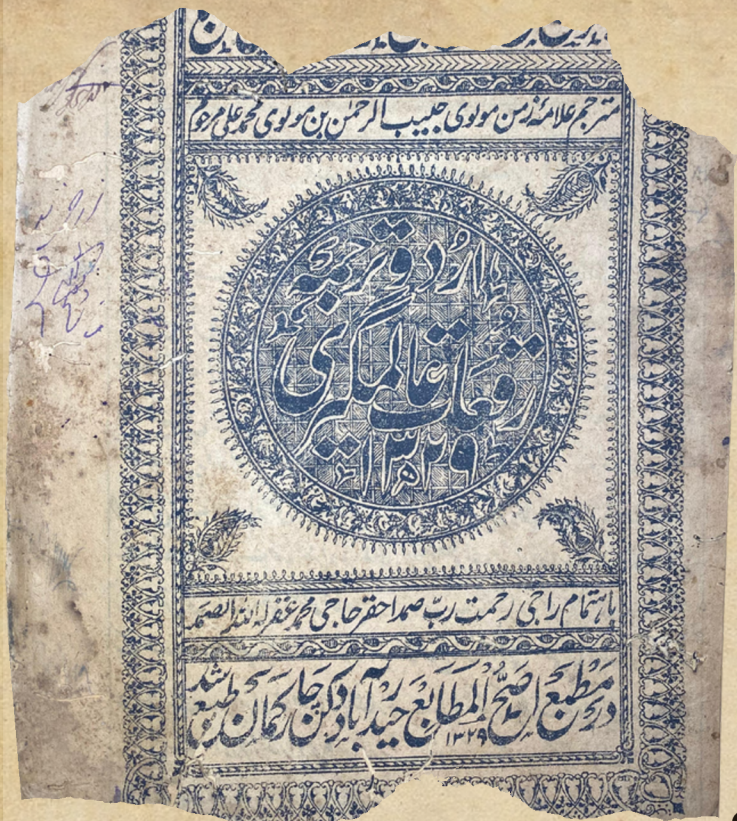 مترجم علامۂ زمن مولوی حبیب الرحمٰن بن مولوی محمد علی مرحوم
اردو ترجمہ
رقعات عالمگیری
۱۳۲۹
باہتمام راجی رحمت ربّ صمد احقر حاجی محمد غفر لہ اللہ الصمد
در مطبع اصحّ المطابع حیدرآباد دکن چار کمان طبع شد
۱۳۲۹